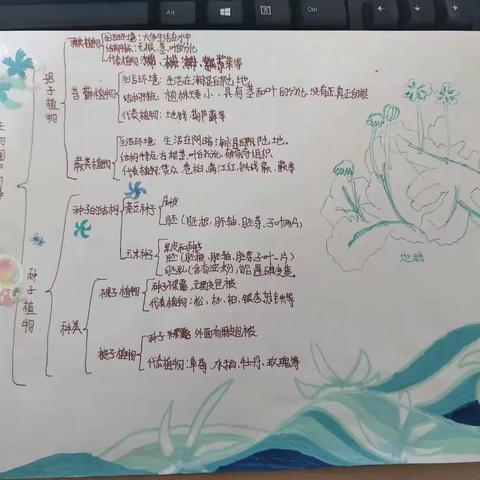 孢子植物
藻类植物
生活环境：大体生活在水中
结构特点：无根、茎、叶的分化
代表植物：
等
苔藓植物
生活环境：生活在潮湿的陆地
结构特点：植株矮小，具有茎和叶的分化，没有真正的根
代表植物：地钱、葫芦藓等
蕨类植物
生活环境：生活在阴暗潮湿的陆地。
结构特点：有根茎叶的分化，
组织
代表植物：
卷柏、满江红、铁线蕨、
等
种子植物
种子的结构
菜豆种子
种皮
胚（胚根、胚轴、胚芽、子叶两片）
玉米种子
果皮和种皮
胚（胚根、胚轴、胚芽、子叶一片）
胚乳（含有淀粉），
遇碘变蓝
种类
裸子植物
种子裸露，无果皮包被
代表植物：松、杉、柏、银杏、苏铁等
被子植物
种子
外面有果皮包被
代表植物：草莓、水稻、牡丹、玫瑰等
地钱
Alt
Ctrl